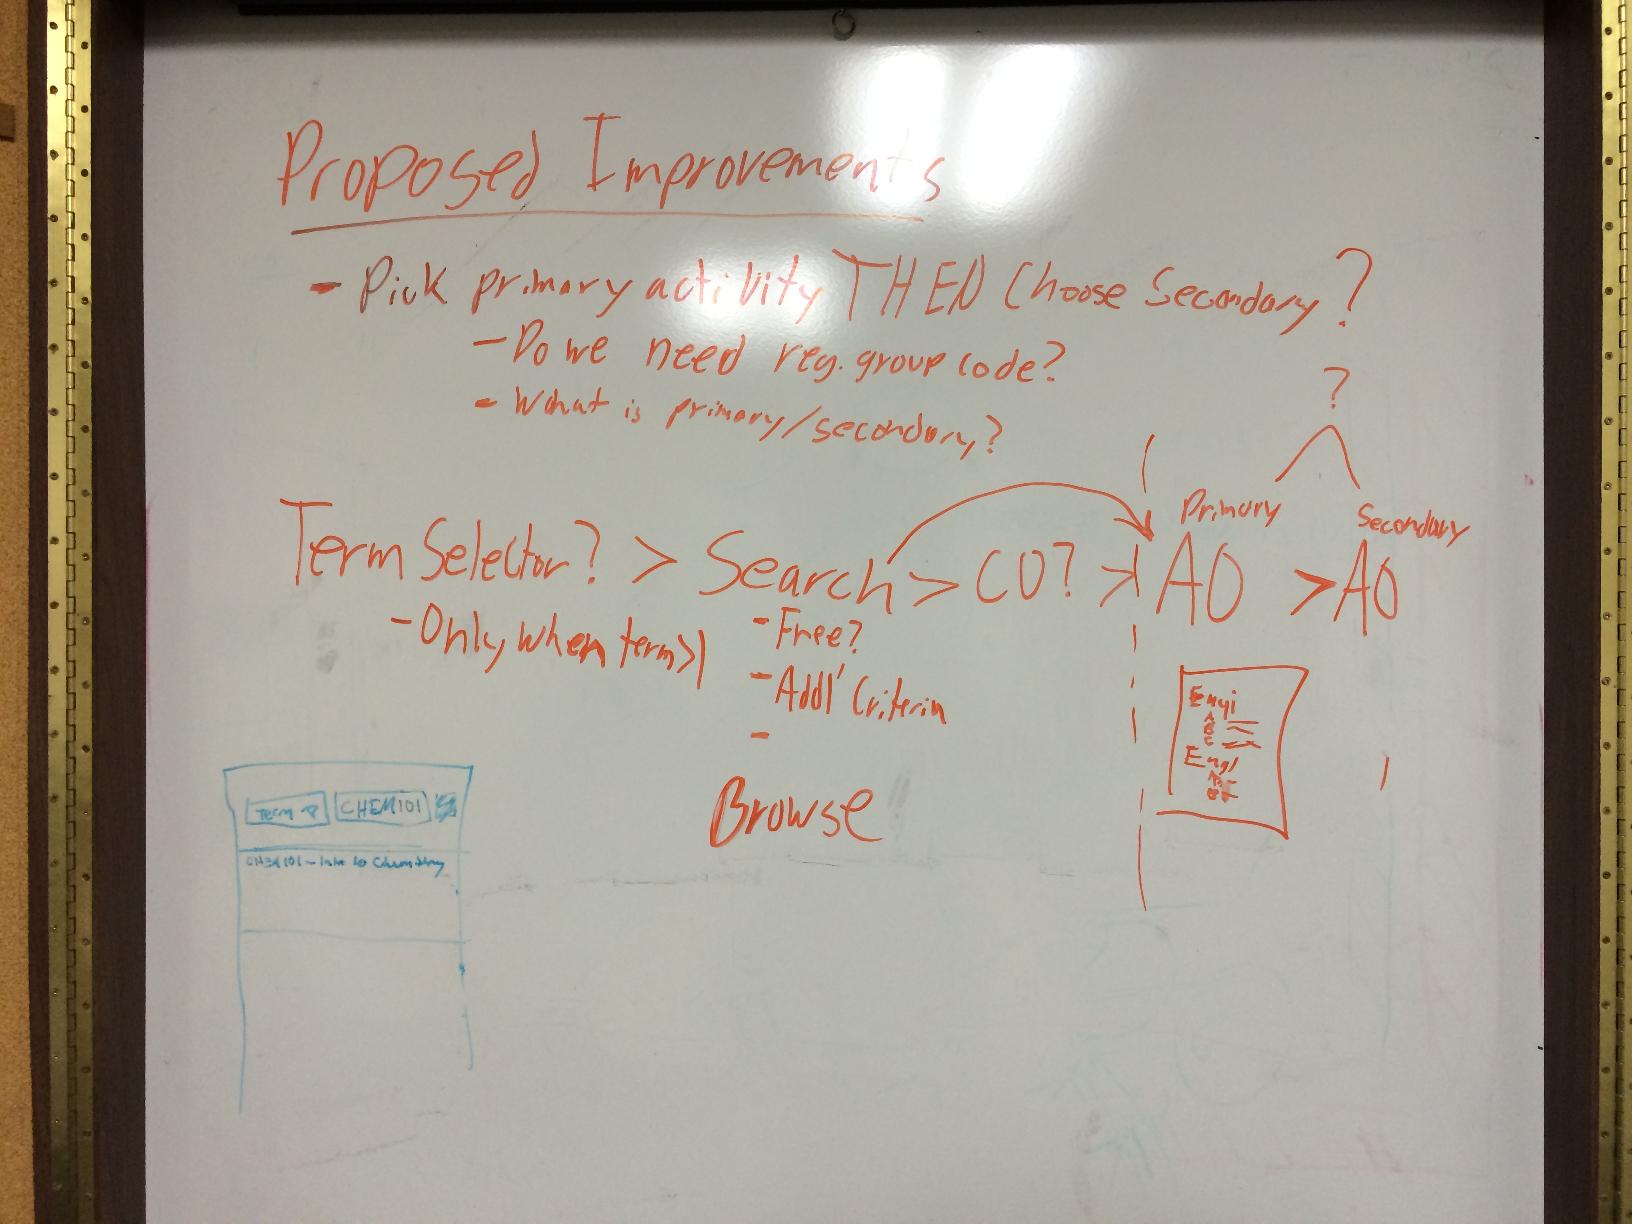 Proposed Improvements
- Pick primary activity THEN Choose Secondary?
- Do we need reg. group code?
- What is primary/secondary?
?
Primary Secondary
Term Selector? > Search > CO? > AO > AO
- Only when term>1
- Free?
- Addl' Criteria
-
Browse
Engi
A
B
C
Engl
Term CHEM101
CHEM101 - Intro to Chemistry